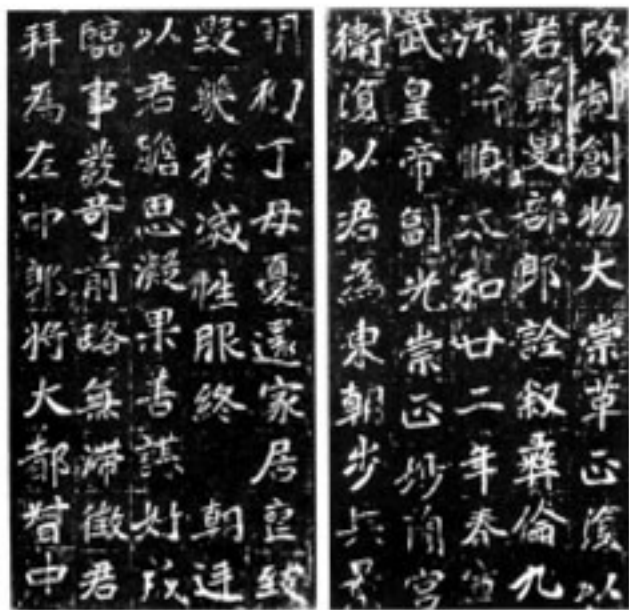 改制創物大崇革正復以
君兼吏部郎詮叙彝倫九
流斯順太和廿二年春宣
武皇帝副光崇正妙簡宮
衛復以君為東朝步兵景
明初丁母憂還家居喪致
毀幾於滅性服終 朝廷
以君膽思凝果善謀好成
臨事發奇前略無滯徵君
拜為左中郎將大都督中